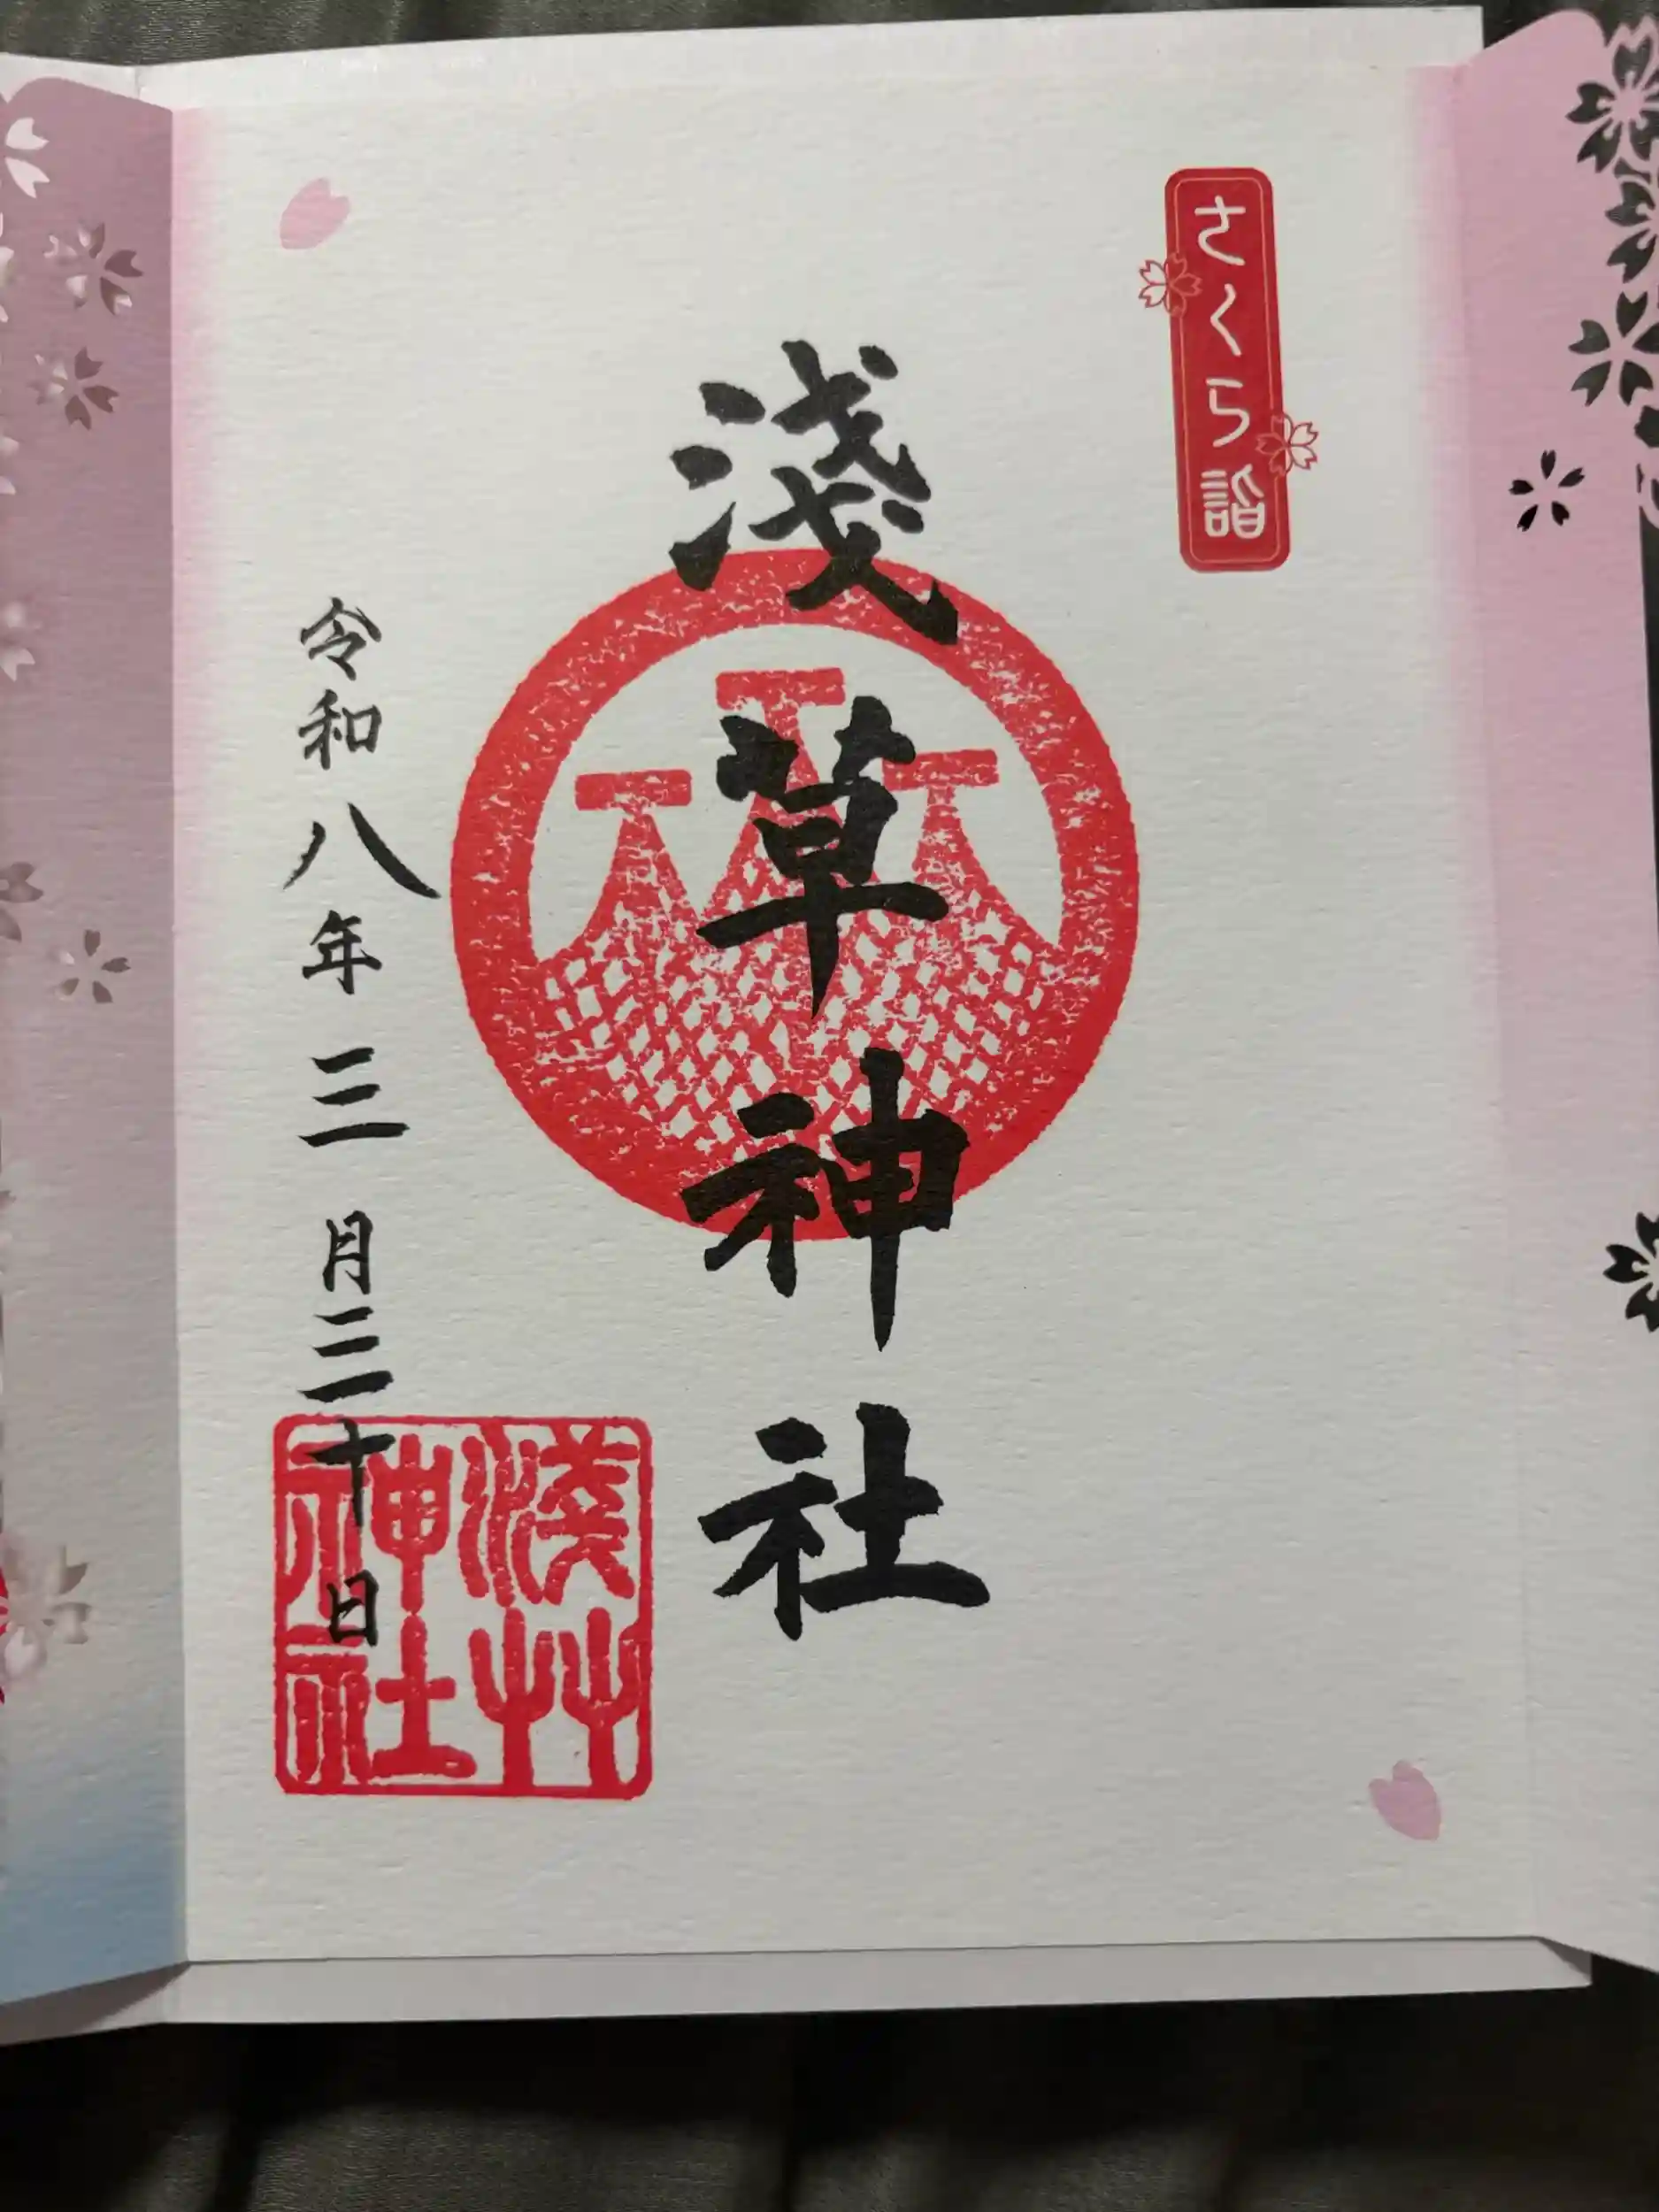 さくら詣
淺草神社
令和八年三月三十日
淺艸
神社